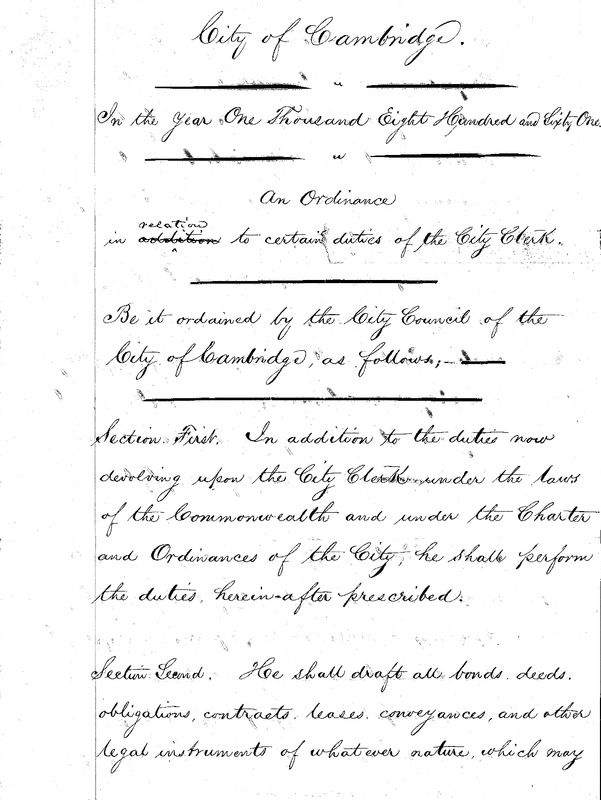 City of Cambridge.
In the Year One Thousand Eight Hundred and Sixty One.
An Ordinance
relation
in addition to certain duties of the City Clerk.
Be it ordained by the City Council of the
City of Cambridge, as follows; —
Section First. In addition to the duties now
devolving upon the City Clerk under the laws
of the Commonwealth and under the Charter
and Ordinances of the City, he shall perform
the duties, herein-after prescribed.
Section Second. He shall draft all bonds. deeds.
obligations, contracts. leases. conveyances, and other
legal instruments of whatever nature, which may